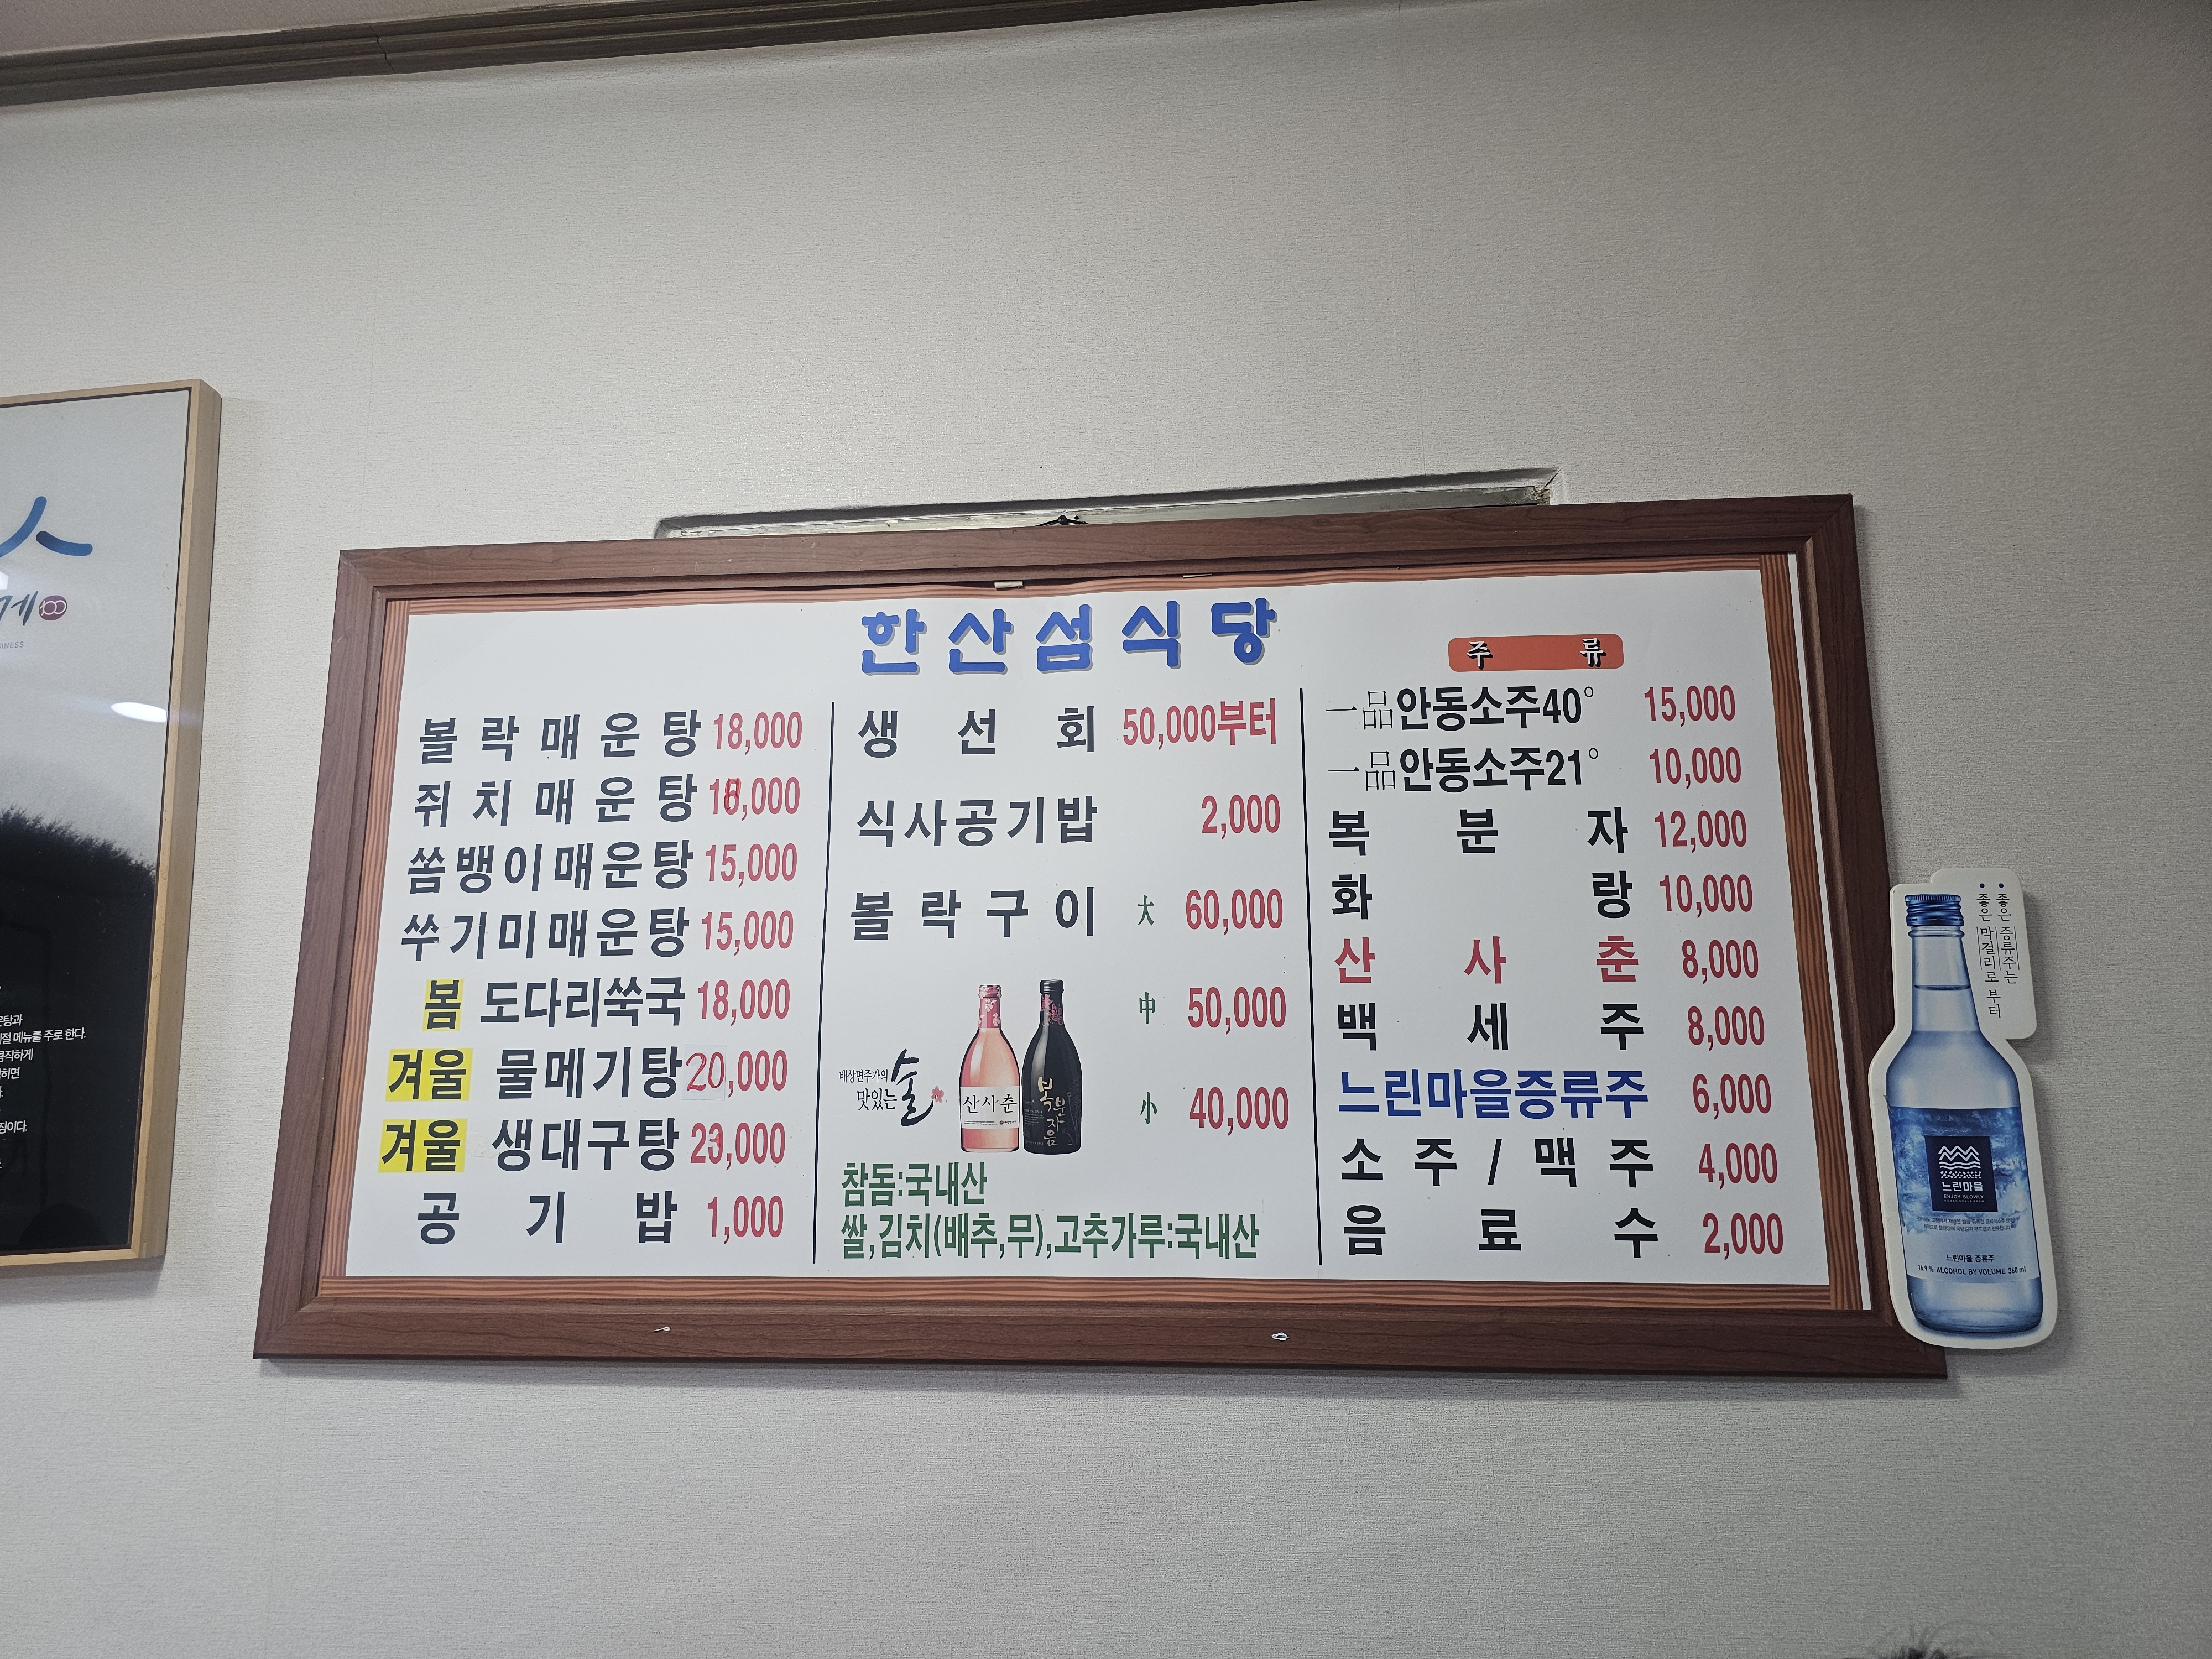 한산섬식당
볼락매운탕 18,000
쥐치매운탕 18,000
쏨뱅이매운탕 15,000
쑤기미매운탕 15,000
봄 도다리쑥국 18,000
겨울 물메기탕 20,000
겨울 생대구탕 23,000
공기밥 1,000
생선회 50,000부터
식사공기밥 2,000
볼락구이 大 60,000
中 50,000
小 40,000
배상면주가의
맛있는 술
산사춘
복분자음
참돔:국내산
쌀,김치(배추,무),고추가루:국내산
주류
一品안동소주40° 15,000
一品안동소주21° 10,000
복분자 12,000
화랑 10,000
산사춘 8,000
백세주 8,000
느린마을증류주 6,000
소주/맥주 4,000
음료수 2,000
좋은 증류주는
좋은 막걸리로 부터
느린마을
ENJOY SLOWLY
느린마을 증류주
16.9% ALCOHOL BY VOLUME 360 ml
게 100
INESS
메뉴를 주로 한다.